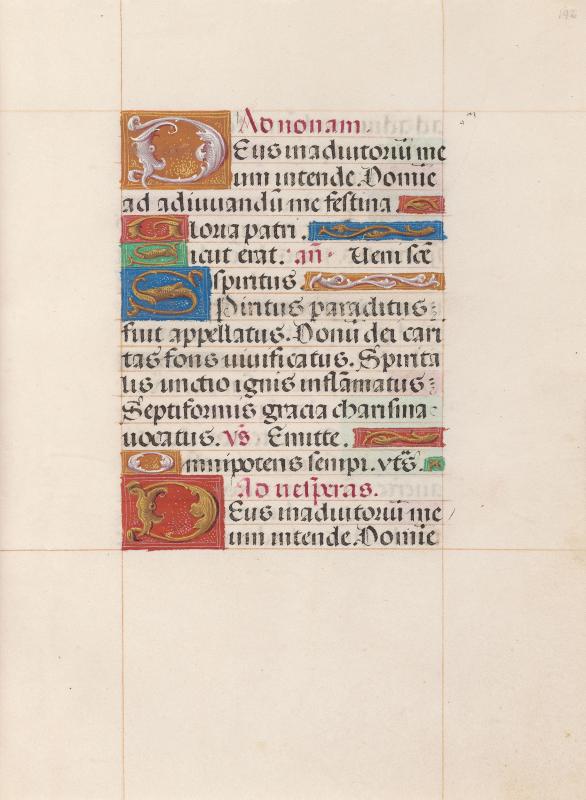 192
Ad nonam.
Deus in adiutoriū me
um intende. Domie
ad adiuuandū me festina.
Gloria patri.
Sicut erat. añ. Ueni scē
spiritus.
Spiritus paraclitus
fuit appellatus. Donū dei cari
tas fons uiuificatus. Spirita
lis unctio ignis inflāmatus
Septiformis gracia charisma
uocatus. vs̄ Emitte.
Omnipotens sempi. vts̄.
Ad uesperas.
Deus in adiutoriū me
um intende. Domie